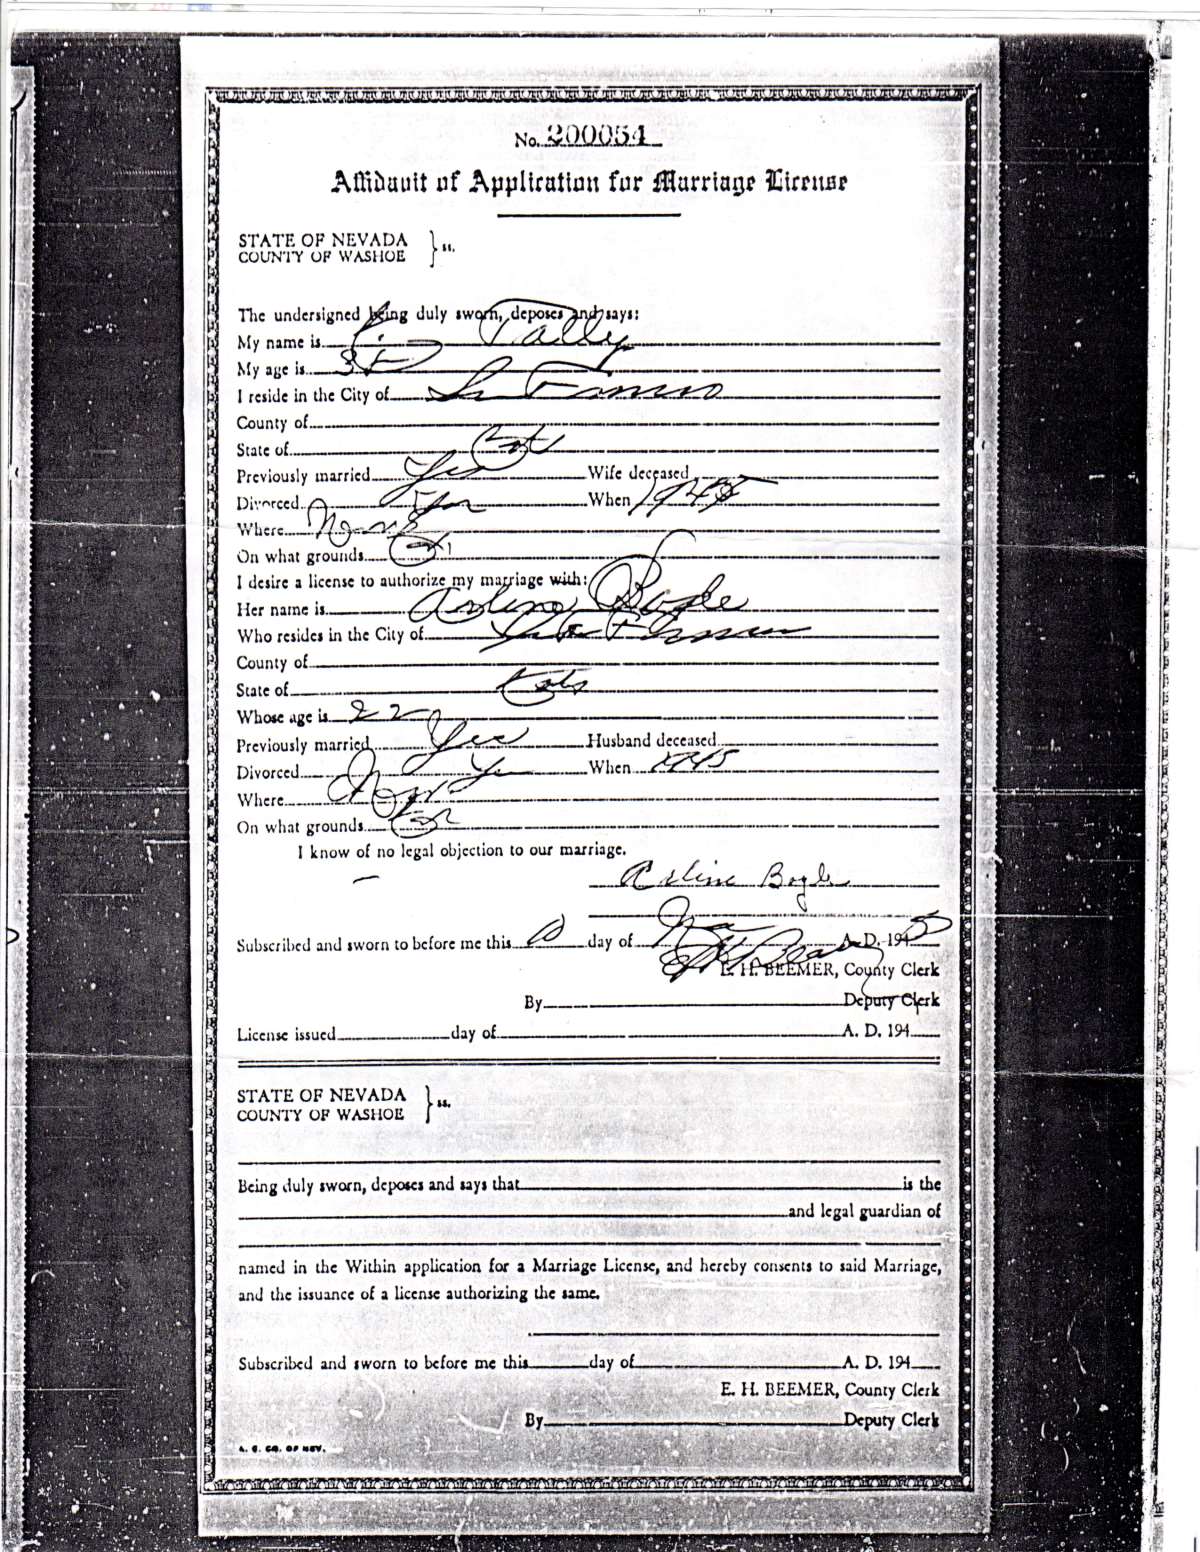 No. 200054
Affidavit of Application for Marriage License
STATE OF NEVADA
COUNTY OF WASHOE } ss.
The undersigned being duly sworn, deposes and says:
My name is Tally
My age is
I reside in the City of San Francisco
County of
State of
Previously married Yes Wife deceased
Divorced When 1945
Where
On what grounds
I desire a license to authorize my marriage with:
Her name is Arline Bogle
Who resides in the City of San Francisco
County of
State of
Whose age is 22
Previously married Yes Husband deceased
Divorced Yes When 1945
Where
On what grounds
I know of no legal objection to our marriage.
Arline Bogle
Subscribed and sworn to before me this day of A. D. 194
E. H. BEEMER, County Clerk
By Deputy Clerk
License issued day of A. D. 194
STATE OF NEVADA
COUNTY OF WASHOE } ss.
Being duly sworn, deposes and says that is the
and legal guardian of
named in the Within application for a Marriage License, and hereby consents to said Marriage,
and the issuance of a license authorizing the same.
Subscribed and sworn to before me this day of A. D. 194
E. H. BEEMER, County Clerk
By Deputy Clerk
A. C. CO. OF NEV.